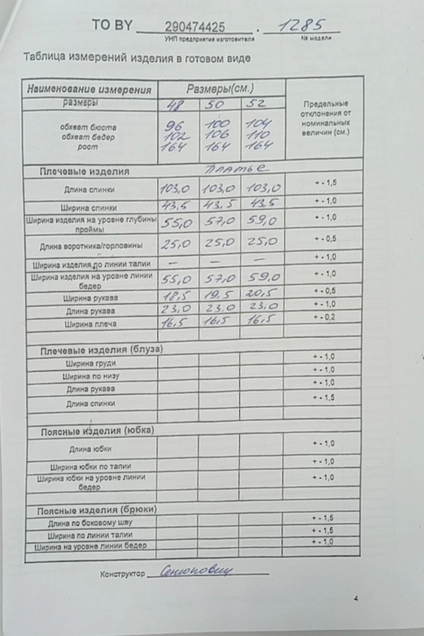 ТО BY 290474425 . 1285
УНП предприятия изготовителя № модели
Таблица измерений изделия в готовом виде
Наименование измерения Размеры(см.) Предельные отклонения от номинальных величин (см.)
размеры 48 50 52
обхват бюста 96 100 104
обхват бедер 102 106 110
рост 164 164 164
Плечевые изделия Платье
Длина спинки 103,0 103,0 103,0 + - 1,5
Ширина спинки 43,5 43,5 43,5 + - 1,0
Ширина изделия на уровне глубины проймы 55,0 57,0 59,0 + - 1,0
Длина воротника/горловины 25,0 25,0 25,0 + - 0,5
Ширина изделия по линии талии — — — + - 1,0
Ширина изделия на уровне линии бедер 55,0 57,0 59,0 + - 1,0
Ширина рукава 18,5 19,5 20,5 + - 0,5
Длина рукава 23,0 23,0 23,0 + - 1,0
Ширина плеча 16,5 16,5 16,5 + - 0,2
Плечевые изделия (блуза)
Ширина груди + - 1,0
Ширина по низу + - 1,0
Длина рукава + - 1,0
Длина спинки + - 1,5
Поясные изделия (юбка)
Длина юбки + - 1,0
Ширина юбки по талии + - 1,0
Ширина юбки на уровне линии бедер + - 1,0
Поясные изделия (брюки)
Длина по боковому шву + - 1,5
Ширина по линии талии + - 1,5
Ширина на уровне линии бедер + - 1,0
Конструктор
4